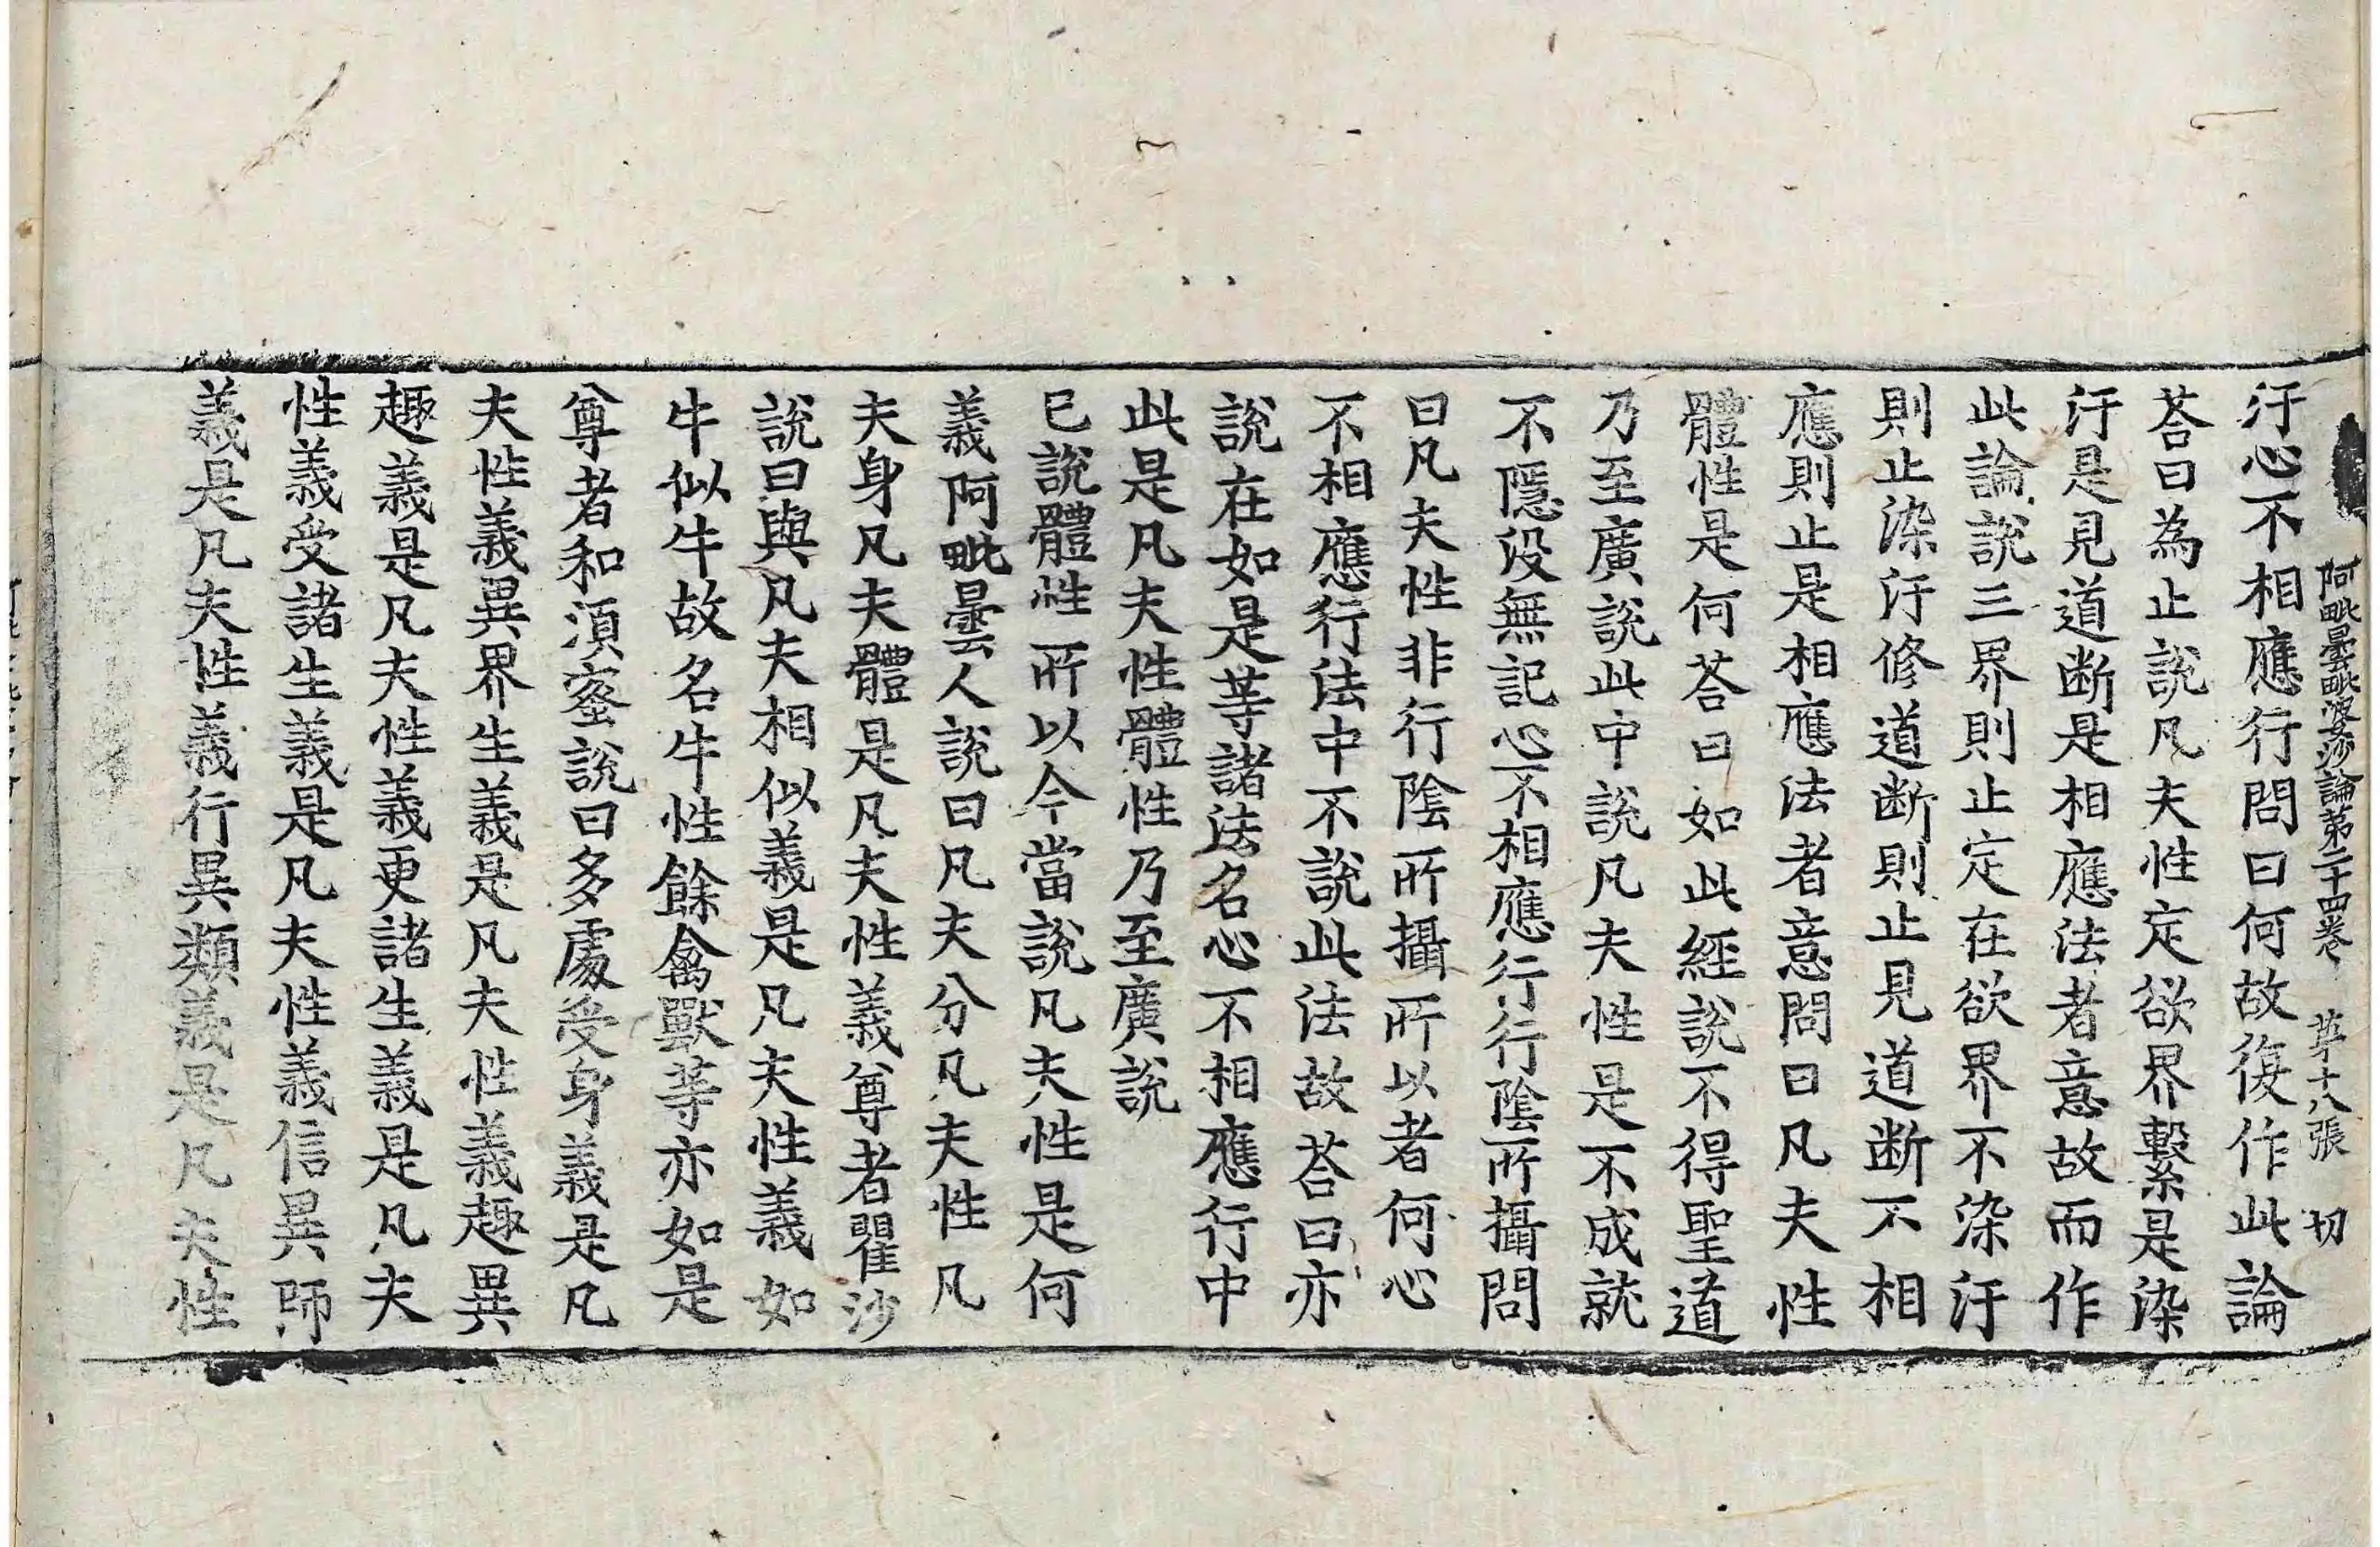 阿毗曇毗婆沙論第二十四卷 第十八張 切
汙心不相應行問曰何故復作此論
荅曰為止說凡夫性定欲界繫是染
汙是見道断是相應法者意故而作
此論說三界則止定在欲界不染汙
則止染汙修道断則止見道断不相
應則止是相應法者意問曰凡夫性
體性是何荅曰如此經說不得聖道
乃至廣說此中說凡夫性是不成就
不隱没無記心不相應行行陰所攝問
曰凡夫性非行陰所攝所以者何心
不相應行法中不說此法故荅曰亦
說在如是等諸法名心不相應行中
此是凡夫性體性乃至廣說
已說體性所以今當說凡夫性是何
義阿毗曇人說曰凡夫分凡夫性凡
夫身凡夫體是凡夫性義尊者瞿沙
說曰與凡夫相似義是凡夫性義如
牛似牛故名牛性餘禽獸等亦如是
尊者和須蜜說曰多處受身義是凡
夫性義異界生義是凡夫性義趣異
趣義是凡夫性義更諸生義是凡夫
性義受諸生義是凡夫性義信異師
義是凡夫性義行異類義是凡夫性